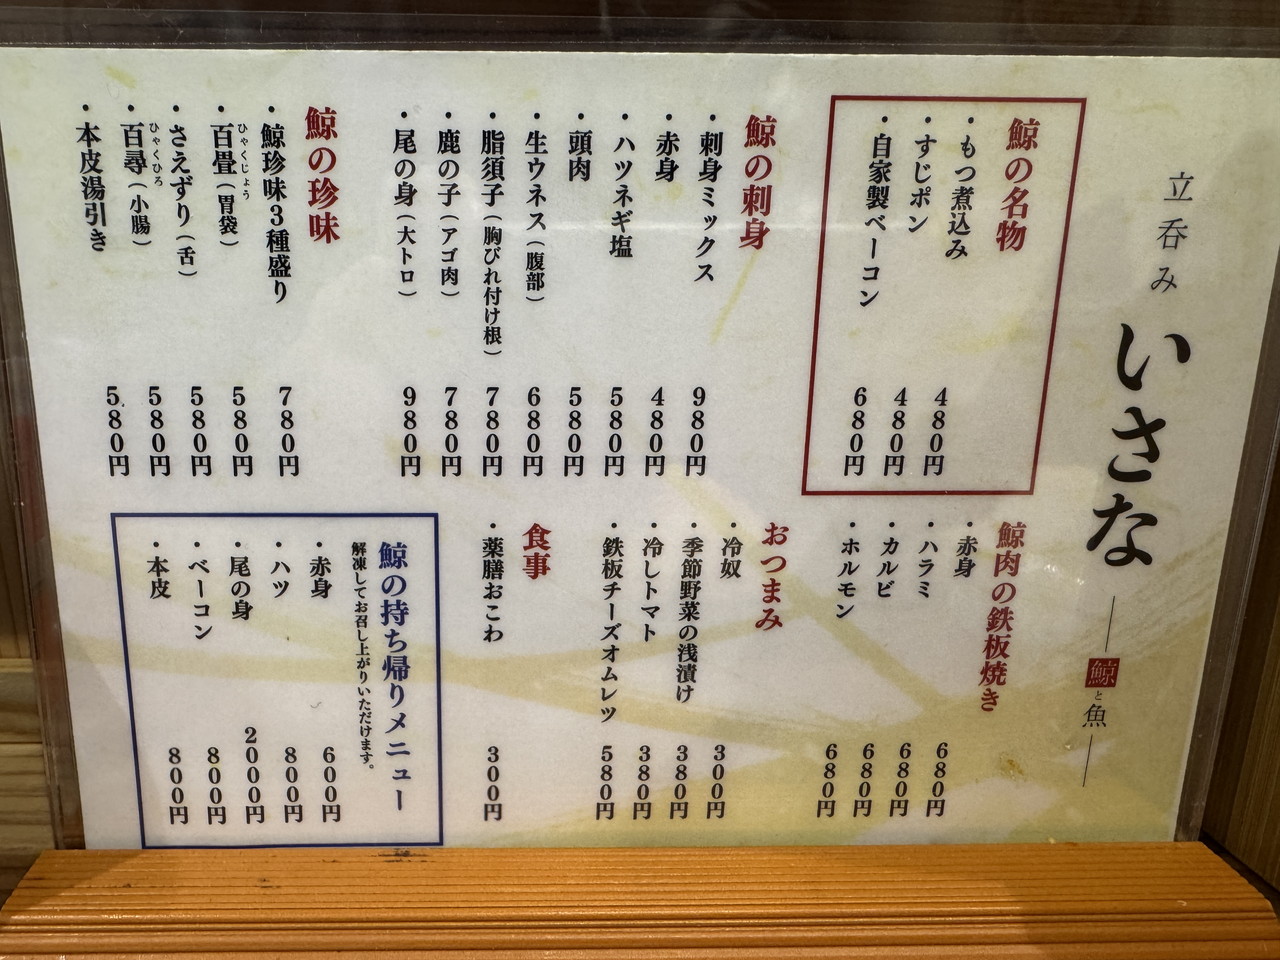 立呑み いさな
鯨と魚
鯨の名物
・もつ煮込み 480円
・すじポン 480円
・自家製ベーコン 680円
鯨の刺身
・刺身ミックス 980円
・赤身 480円
・ハツネギ塩 580円
・頭肉 580円
・生ウネス（腹部） 680円
・脂須子（胸びれ付け根） 780円
・鹿の子（アゴ肉） 780円
・尾の身（大トロ） 980円
鯨の珍味
・鯨珍味3種盛り 780円
・百畳（胃袋） 580円
ひゃくじょう
・さえずり（舌） 580円
・百尋（小腸） 580円
ひゃくひろ
・本皮湯引き 580円
鯨肉の鉄板焼き
・赤身 680円
・ハラミ 680円
・カルビ 680円
・ホルモン 680円
おつまみ
・冷奴 300円
・季節野菜の浅漬け 380円
・冷しトマト 380円
・鉄板チーズオムレツ 580円
食事
・薬膳おこわ 300円
鯨の持ち帰りメニュー
解凍してお召し上がりいただけます。
・赤身 600円
・ハツ 800円
・尾の身 2000円
・ベーコン 800円
・本皮 800円